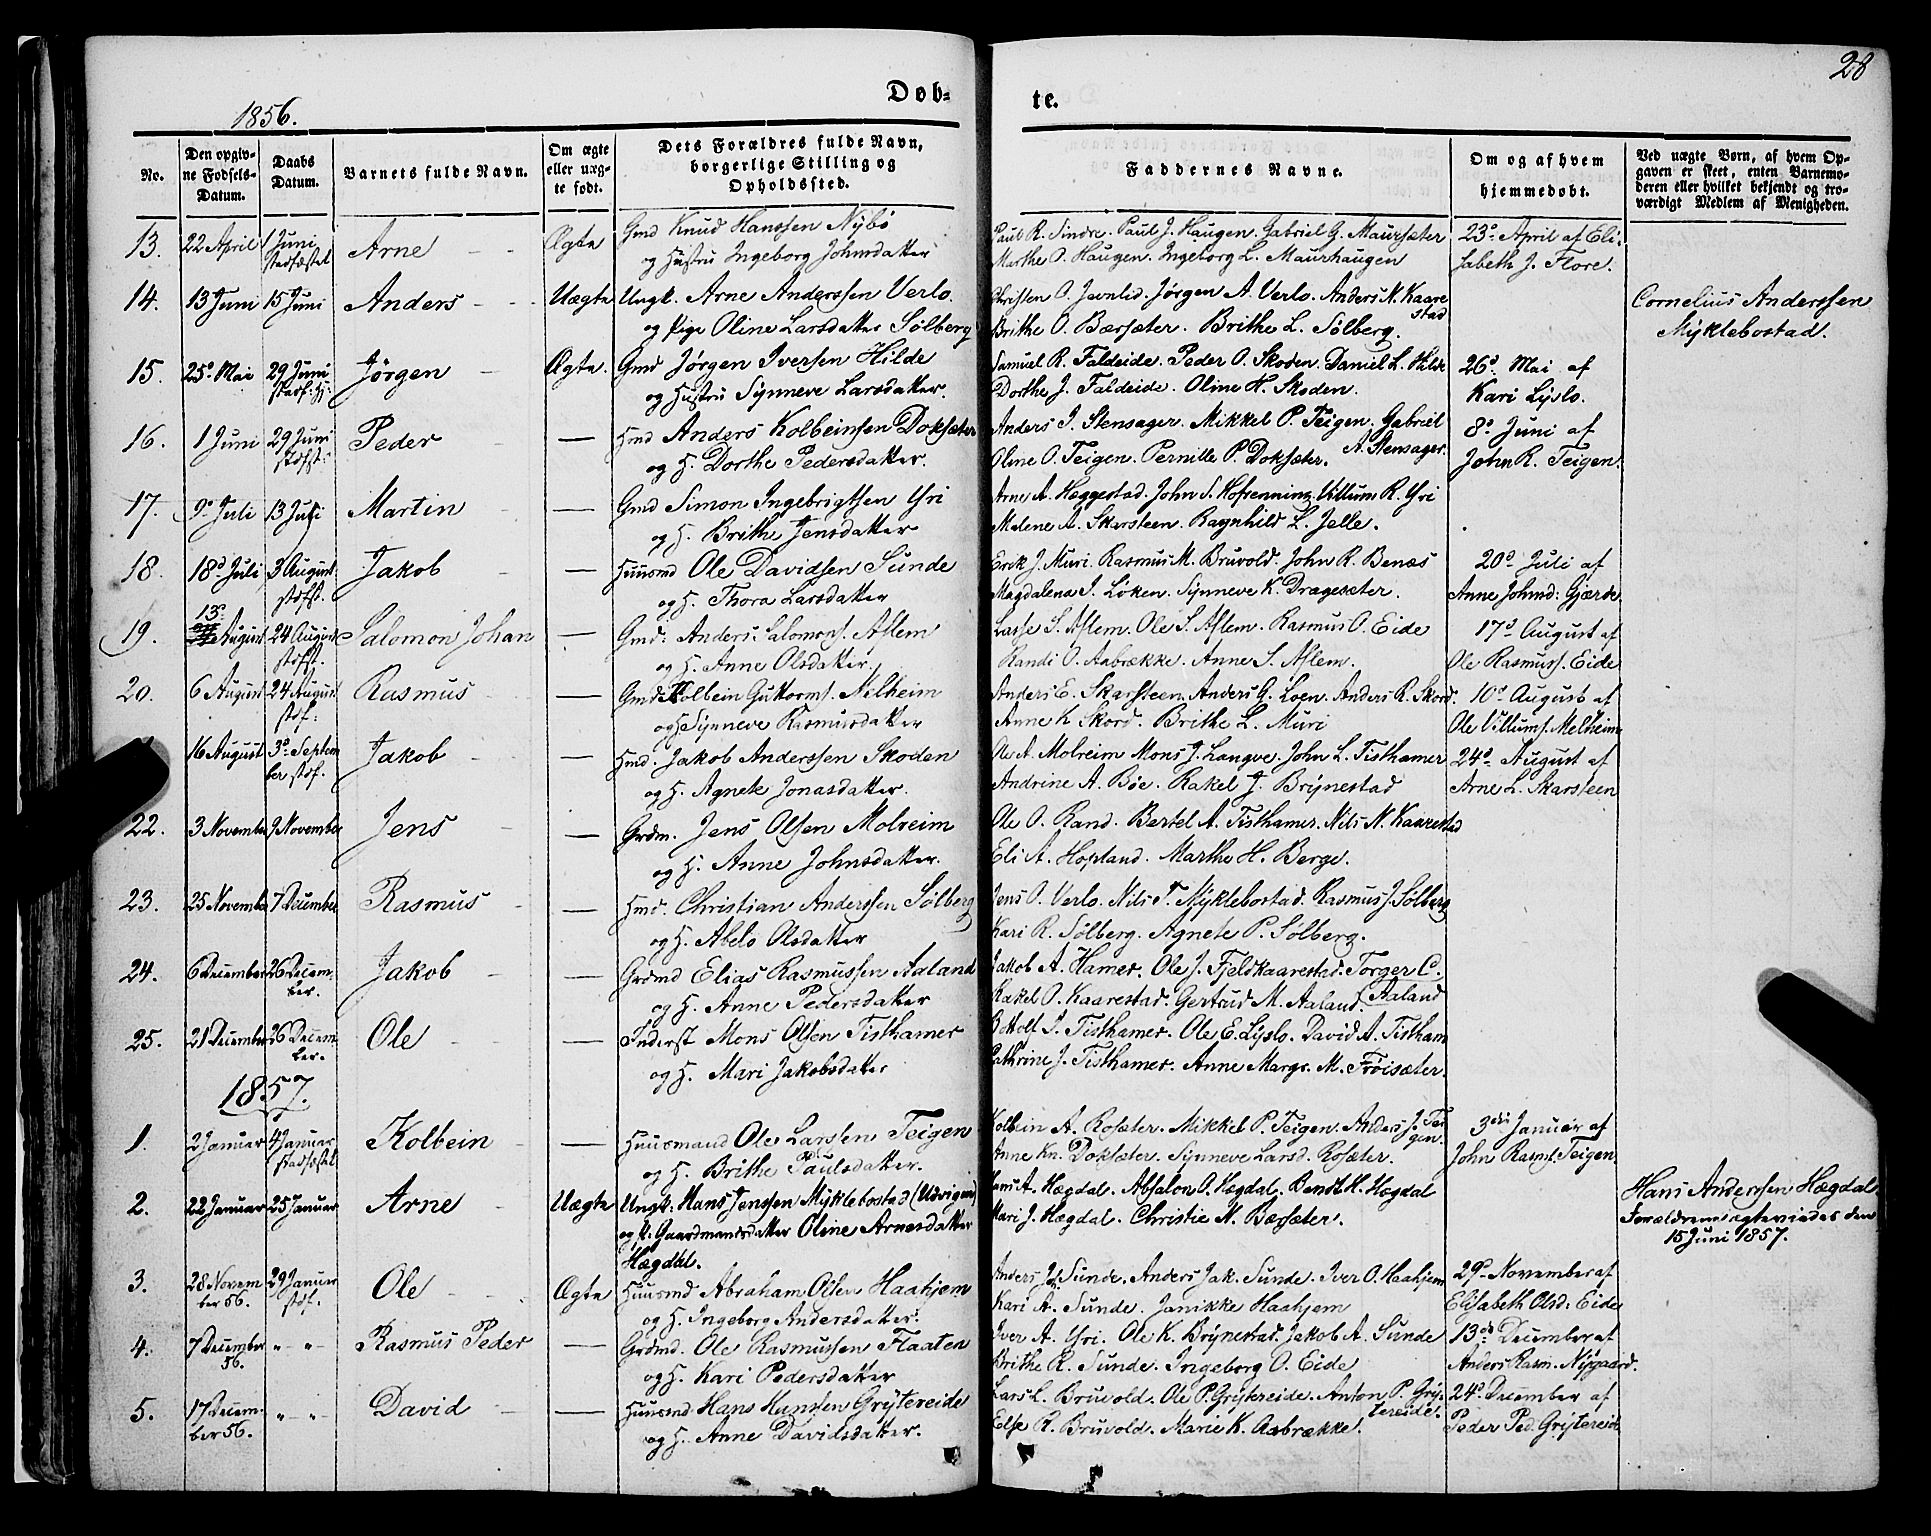 28
Døb-
te.
1856.
No.
Den opgiv-
ne Fødsels-
Datum.
Daabs
Datum.
Barnets fulde Navn.
Om ægte
eller uæg-
te født.
Dets Forældres fulde Navn,
borgerlige Stilling og
Opholdssted.
Faddernes Navne.
Om og af hvem
hjemmedøbt.
Ved uægte Børn, af hvem Op-
gaven er skeet, enten Barnemo-
deren eller hvilket bekjendt og tro-
værdigt Medlem af Menigheden.
13. 22 April 1 Juni Arne Ægte Gmd Knud Hanssen Nybø Paul R. Sindre. Paul J. Haugen. Gabriel G. Maursæter 23d April af Eli-
stadfæstet og Hustru Ingeborg Johnsdatter Marthe O. Haugen. Ingeborg L. Maurhaugen sabeth J. Flore.
14. 13 Juni 15 Juni Anders Uægte Ungk. Arne Anderssen Verlo. Christen O. Jevnlid. Jørgen A. Verlo. Anders N. Kaare Cornelius Anderssen
og Pige Oline Larsdatter Sølberg Brithe O. Bærsæter. Brithe L. Sølberg. stad Myklebostad.
15. 25d Mai 29 Juni Jørgen Ægte. Gmd Jørgen Iversen Hilde Samuel R. Faleide. Peder O. Skoden. Daniel L. Hilde 26d Mai af
og Hustru Synneve Larsdatter. Dorthe J. Faleide. Oline H. Skoden. Kari Lyslo.
16. 1 Juni 29 Juni Peder — Hmd Anders Kolbeinsen Doksæter Anders I. Stensager. Mikkel P. Teigen. Gabriel 8d Juni af
stdfst: og H. Dorthe Pedersdatter. Oline O. Teigen. Pernille P. Doksæter. A. Stensager. John R. Teigen.
17. 9d Juli 13 Juli Martin — Gmd Simon Ingebrigtsen Yri Arne A. Heggestad. John S. Hofrenning. Villum R. Yri
og H. Brithe Jensdatter Malene A. Skarsteen. Ragnhild L. Jelle.
18. 18d Juli 3 August Jakob — Huusmd Ole Davidsen Sunde Erik J. Muri. Rasmus M. Bruvold. John R. Benæs 20d Juli af
stdfst. og H. Thora Larsdatter Magdalena I. Løken. Synneve K. Dragesæter. Anne Johnsd: Gjærde.
19. 13d August 24 August Salomon Johan — Gmd. Anders Salomons. Aflem Lasse S. Aflem. Ole S. Aflem. Rasmus O. Eide 17d August af
stdfst. og H. Anne Olsdatter. Randi O. Aabrække. Anne S. Aflem. Ole Rasmuss. Eide
20. 6 August 24 August Rasmus — Gmd Kolbein Guttorms. Melheim Anders E. Skarsteen. Anders G. Loen. Anders R. Skord. 10d August af
stdf: og H Synneve Rasmusdatter Anne K Skord. Brithe L. Muri Ole Villums. Melheim
16 August 3d Septem Jakob — Hmd. Jakob Anderssen Skoden Ole A. Molreim Mons J. Langve. John L. Tisthamer 24d August af
ber stdf. og H. Agnete Jonasdatter. Andrine A. Bøe. Rakel J. Brynestad Arne L. Skarsteen
22. 3 November 9 November Jens — Grdm. Jens Olsen Molreim Ole O. Rand. Bertel A. Tisthamer. Nils N. Kaarestad
og H. Anne Johnsdatter. Eli A. Hopland. Marthe H. Berge.
23. 25 November 7 December Rasmus — Hmd. Christian Anderssen Sølberg Jens O. Verlo. Nils T. Myklebostad. Rasmus J. Sølberg
og H. Abelo Olsdatter Kari R. Sølberg. Agnete P. Sølberg.
24. 6 December 26 Decem- Jakob — Grdmd Elias Rasmussen Aaland Jakob A. Hamer. Ole J. Fjeldkaarestad. Torger C.
ber. og H. Anne Pedersdatter Rakel O. Kaarestad. Gertrud M. Aaland. Aaland
25. 21 December 26 Decem- Ole — Inderst Mons Olsen Tisthamer Botolf S. Tisthamer. Ole E. Lyslo. David A. Tistham
ber. og H. Mari Jakobsdatter Cathrine J. Tisthamer. Anne Margr. M. Frøisæter.
1857.
1. 2 Januar 4 Januar Kolbein — Huusmand Ole Larssen Teigen Kolbein A. Rosæter. Mikkel P. Teigen. Anders J. Tei 3die Januar af
stadfæstet og H. Brithe Paulsdatter. Anne Kn. Doksæter. Synneve Larsd. Rosæter. gen. John Rasm. Teigen.
2. 22 Januar 25 Januar Arne Uægte Ungk. Hans Jenssen Myklebostad (Udvigen) Hans A. Hægdal. Absalon O. Hægdal. Bendt H. Hægdal Hans Anderssen Hægdal.
og P. Gaardmandsdatter Oline Arnesdatter Mari J. Hægdal. Christie N. Bærsæter. Forældrene ægteviedes den
Hægdal. 15 Juni 1857.
3. 28 Novem 29 Januar Ole Ægte Huusmd Abraham Olsen Haahjem Anders J. Sunde. Anders Jak. Sunde. Iver O. Haahjem 29d November af
ber 56. stdf. og H. Ingeborg Andersdatter. Kari A. Sunde. Janikke Haahjem Elisabeth Olsd. Eide
4. 7 December " - " Rasmus Peder — Grdmd. Ole Rasmussen Flaaten Iver A. Yri. Ole K. Brynestad. Jakob A. Sunde 13de December af
56. og H. Kari Pedersdatter Brithe R. Sunde. Ingeborg O. Eide Anders Rasm. Nygaard.
5. 17 Decem- " - " David — Huusmd Hans Hanssen Grytereide Lars L. Bruvold. Ole P. Grytereide. Anton P. Gry- 24d December af
ber 56. og H. Anne Davidsdatter. Else R. Bruvold. Marie K. Aabrække. tereide. Peder Ped. Grytereide